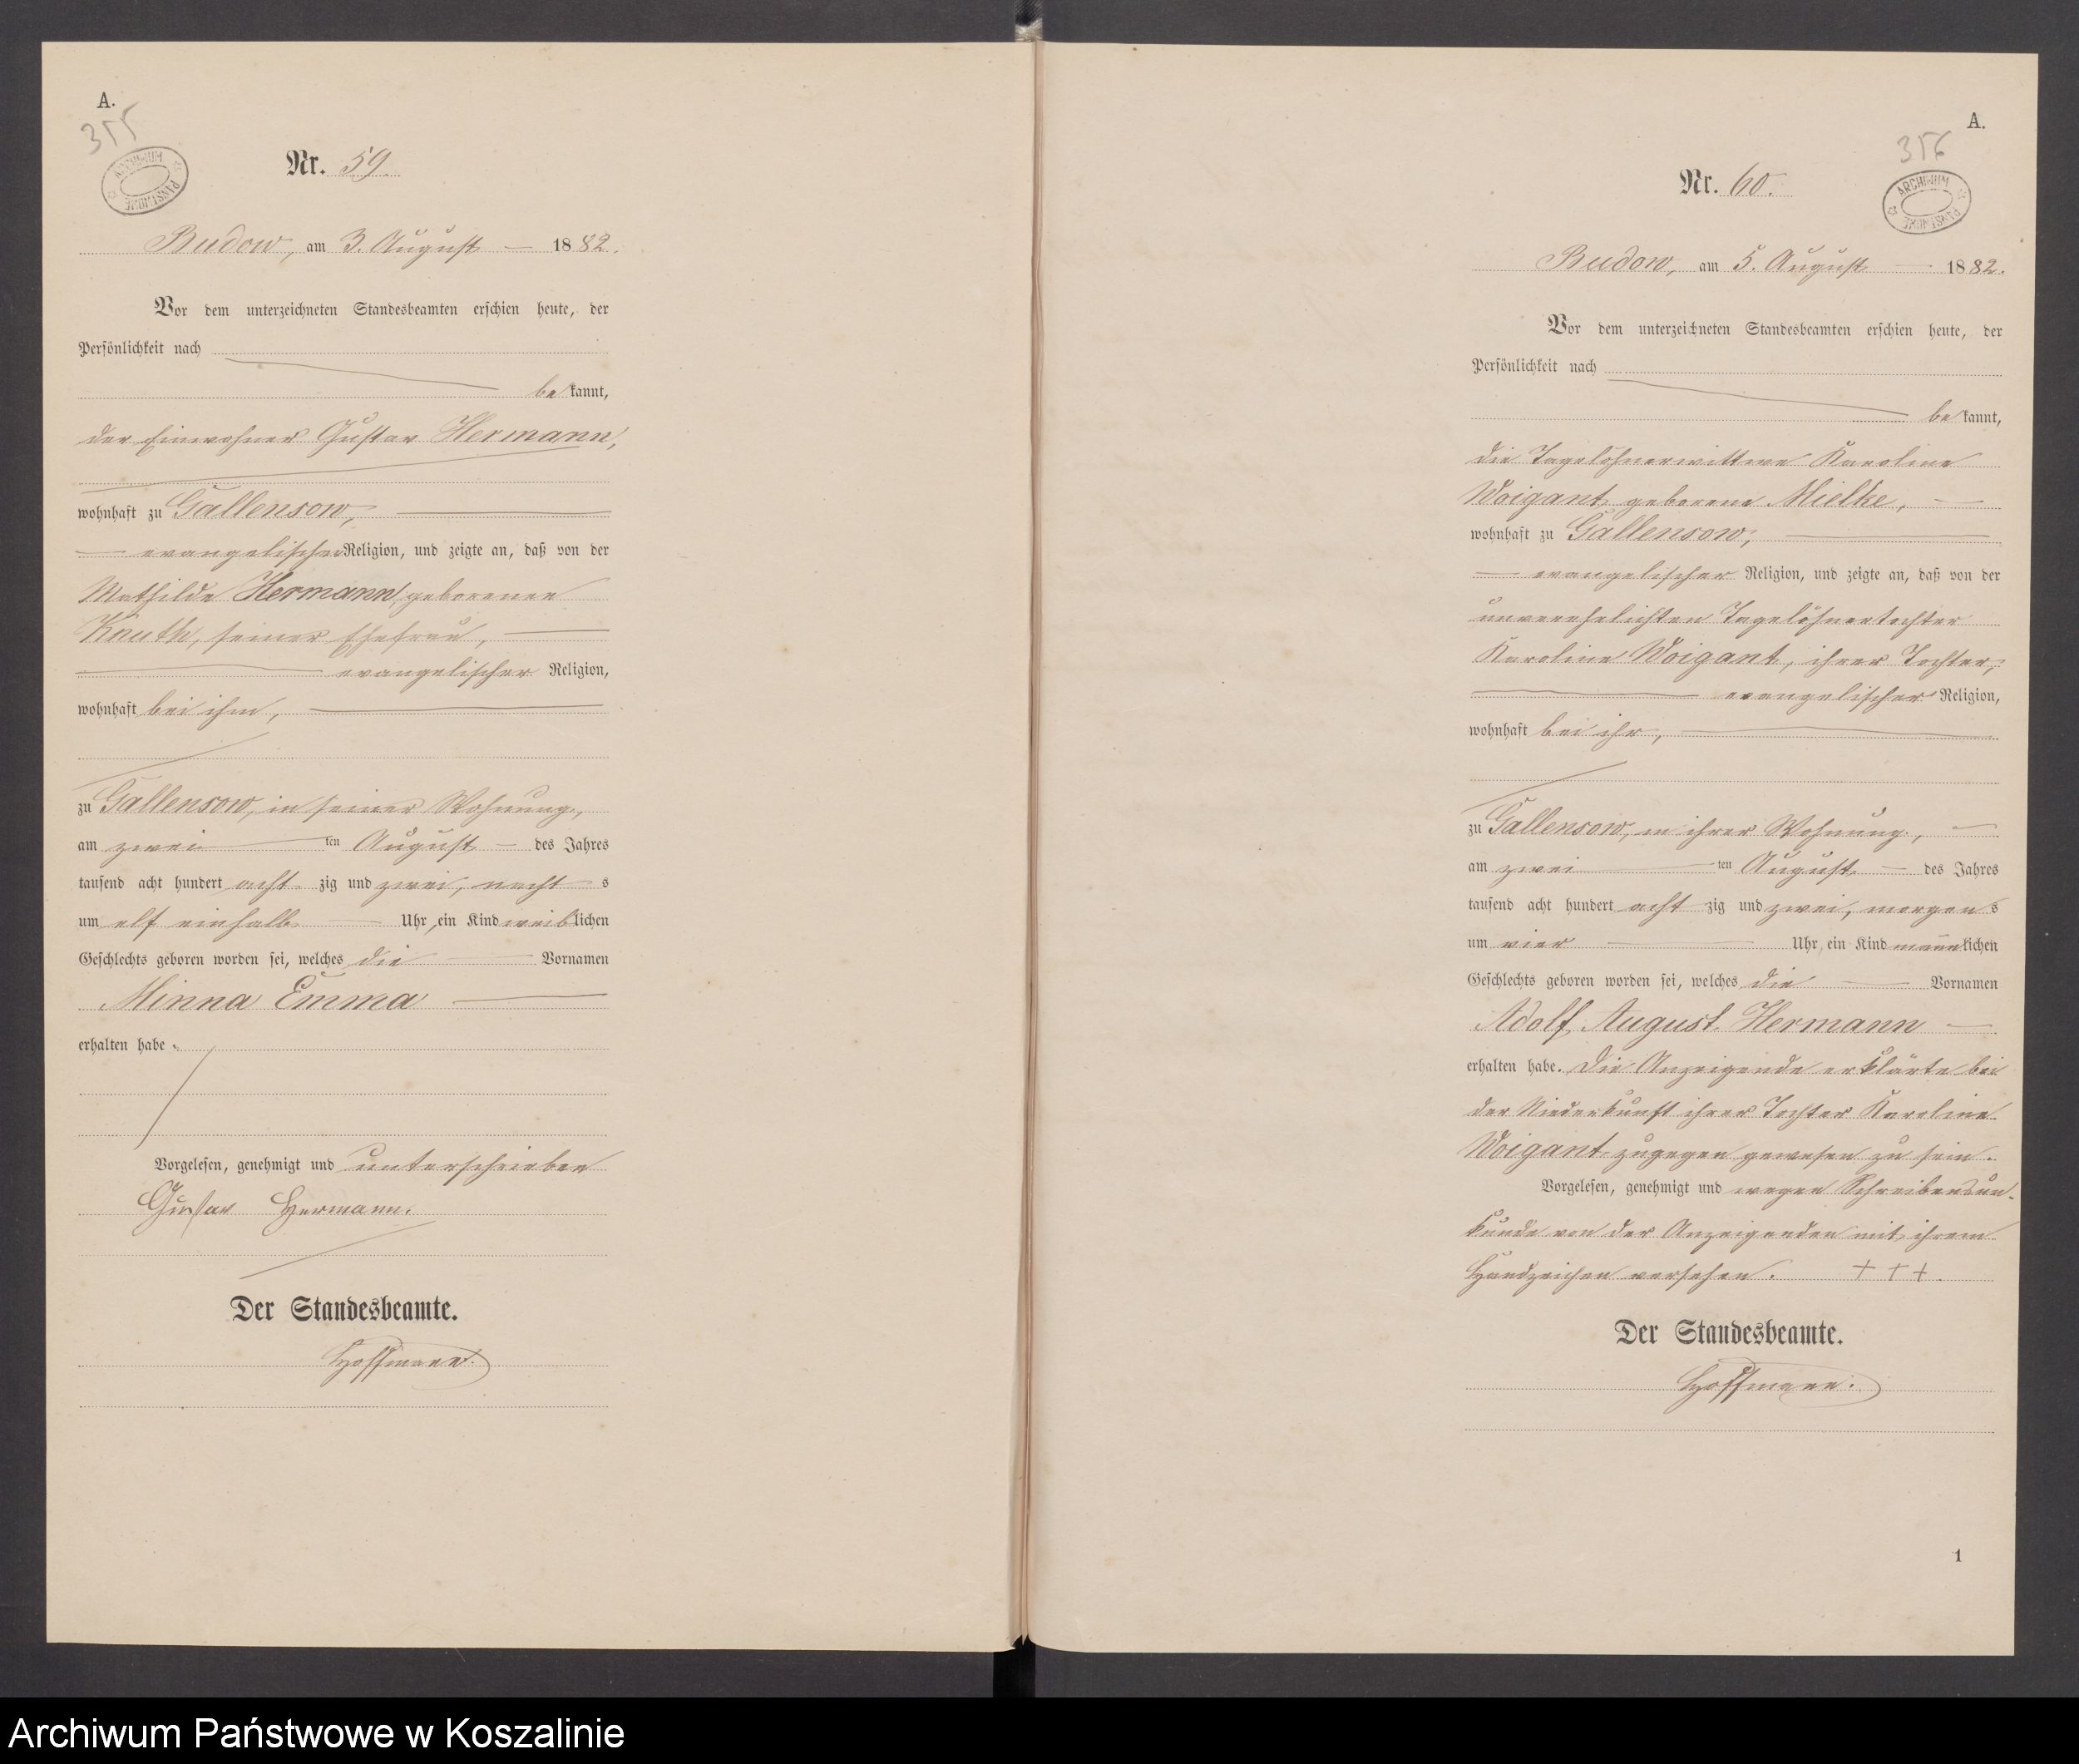 A.
355
ARCHIWUM PAŃSTWOWE
Nr. 59.
Budow, am 3. August 1882.
Vor dem unterzeichneten Standesbeamten erschien heute, der
Persönlichkeit nach
bekannt,
der Einwohner Gustav Hermann,
wohnhaft zu Gallensow,
evangelischer Religion, und zeigte an, daß von der
Mathilde Hermann, geborenen
Knuth, seiner Ehefrau,
evangelischer Religion,
wohnhaft bei ihm,
zu Gallensow, in seiner Wohnung,
am zwei ten August des Jahres
tausend acht hundert acht zig und zwei, nachts
um elf einhalb Uhr, ein Kind weiblichen
Geschlechts geboren worden sei, welches die Vornamen
Minna Emma
erhalten habe.
Vorgelesen, genehmigt und unterschrieben
Gustav Hermann.
Der Standesbeamte.
Hoffmann.
A.
356
ARCHIWUM PAŃSTWOWE
Nr. 60.
Budow, am 5. August 1882.
Vor dem unterzeichneten Standesbeamten erschien heute, der
Persönlichkeit nach
bekannt,
die Tagelöhnerwittwe Karoline
Woigant, geborene Mielke,
wohnhaft zu Gallensow,
evangelischer Religion, und zeigte an, daß von der
unverehelichten Tagelöhnertochter
Karoline Woigant, ihrer Tochter,
evangelischer Religion,
wohnhaft bei ihr,
zu Gallensow, in ihrer Wohnung,
am zwei ten August des Jahres
tausend acht hundert acht zig und zwei, morgens
um vier Uhr, ein Kind männlichen
Geschlechts geboren worden sei, welches die Vornamen
Adolf August Hermann
erhalten habe. Die Anzeigende erklärte bei
der Niederkunft ihrer Tochter Karoline
Woigant zugegen gewesen zu sein.
Vorgelesen, genehmigt und wegen Schreibensun-
kunde von der Anzeigenden mit ihrem
Handzeichen versehen. + + +.
Der Standesbeamte.
Hoffmann.
1
Archiwum Państwowe w Koszalinie